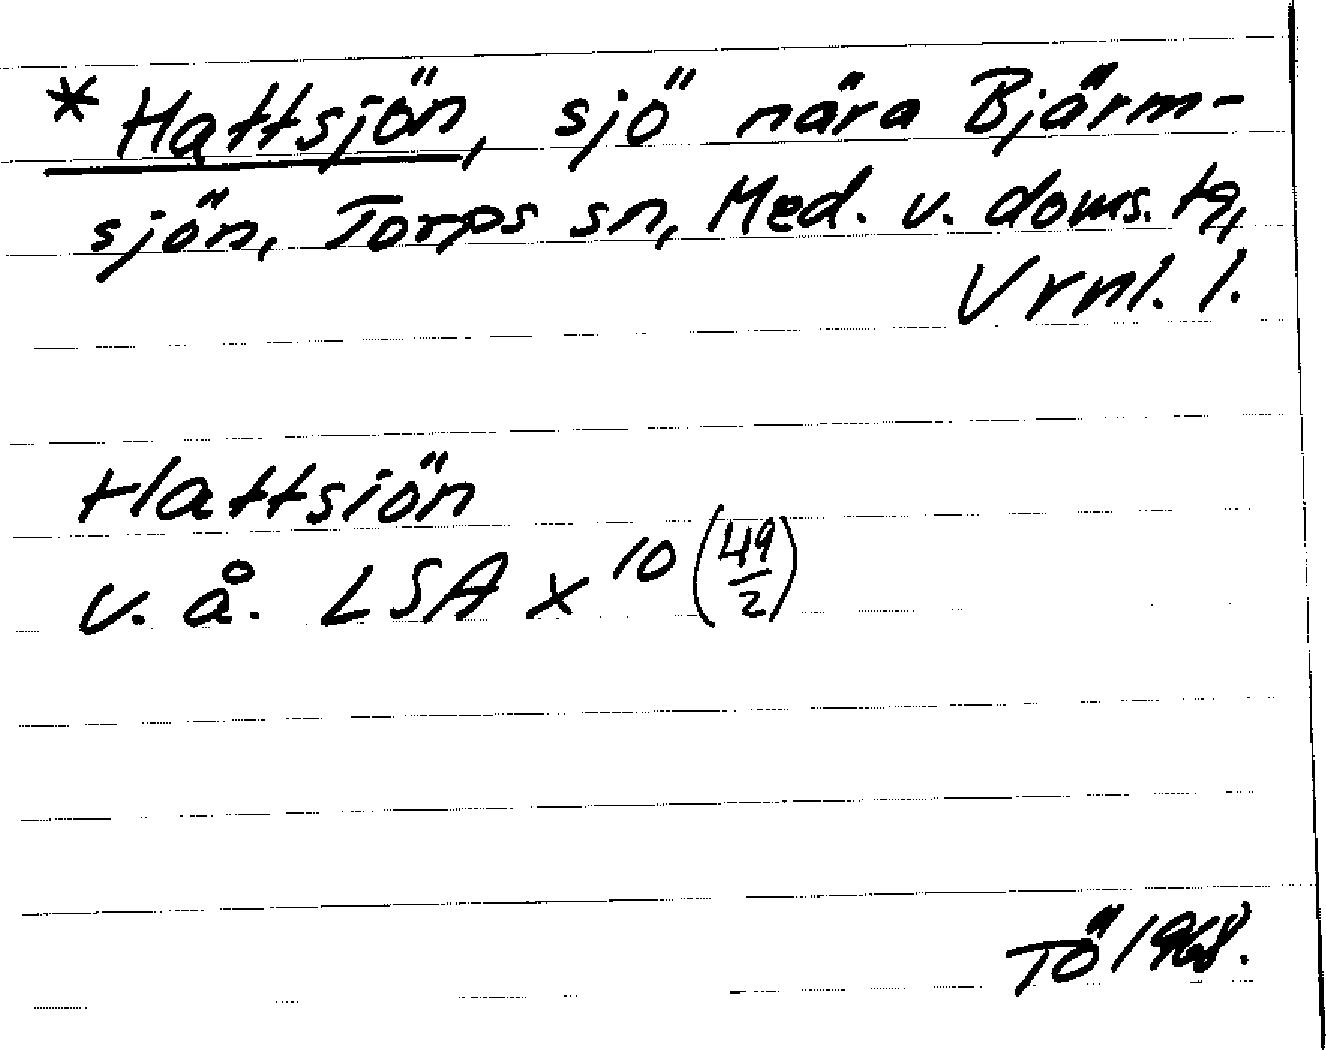 * Hattsjön, sjö nära Bjärm-
sjön, Torps sn, Med. v. doms. tg,
Vrnl. l.
Hattsiön
v. å. LSA x 10 (49/2)
TÖ 1968.